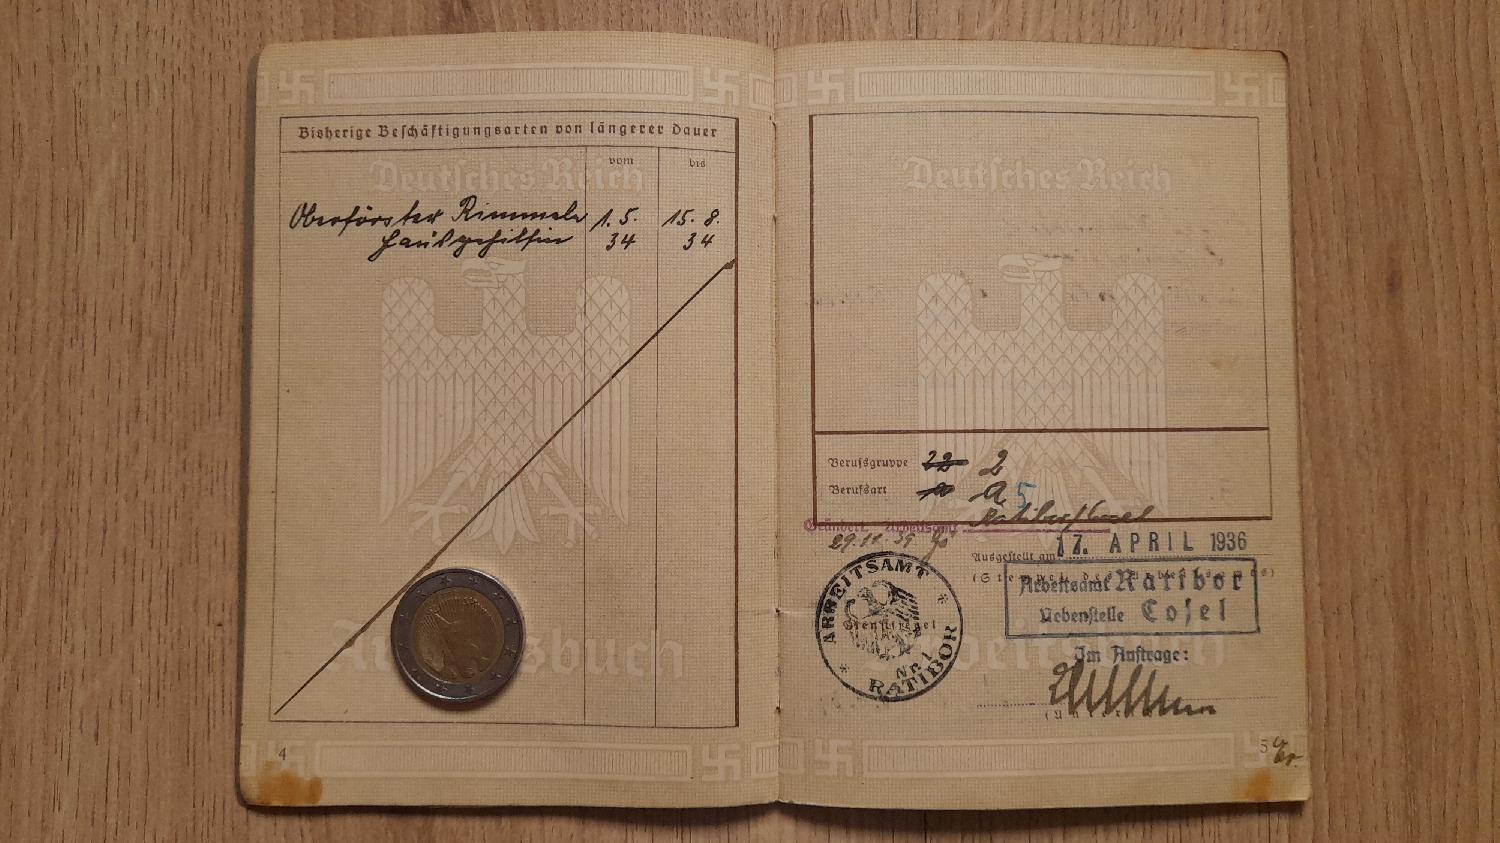 Bisherige Beschäftigungsarten von längerer Dauer
vom
bis
Deutsches Reich
Oberförster Rimmele 1. 5. 15. 8.
Hausgehilfin 34 34
Arbeitsbuch
4
Deutsches Reich
Berufsgruppe 22 2
Berufsart a 5
Geändert, Arbeitsamt Ratibor/Cosel
29.12.39
Ausgestellt am 17. APRIL 1936
Arbeitsamt Ratibor
Nebenstelle Cosel
ARBEITSAMT
Dienstsiegel
Nr. 1
RATIBOR
Im Auftrage:
5